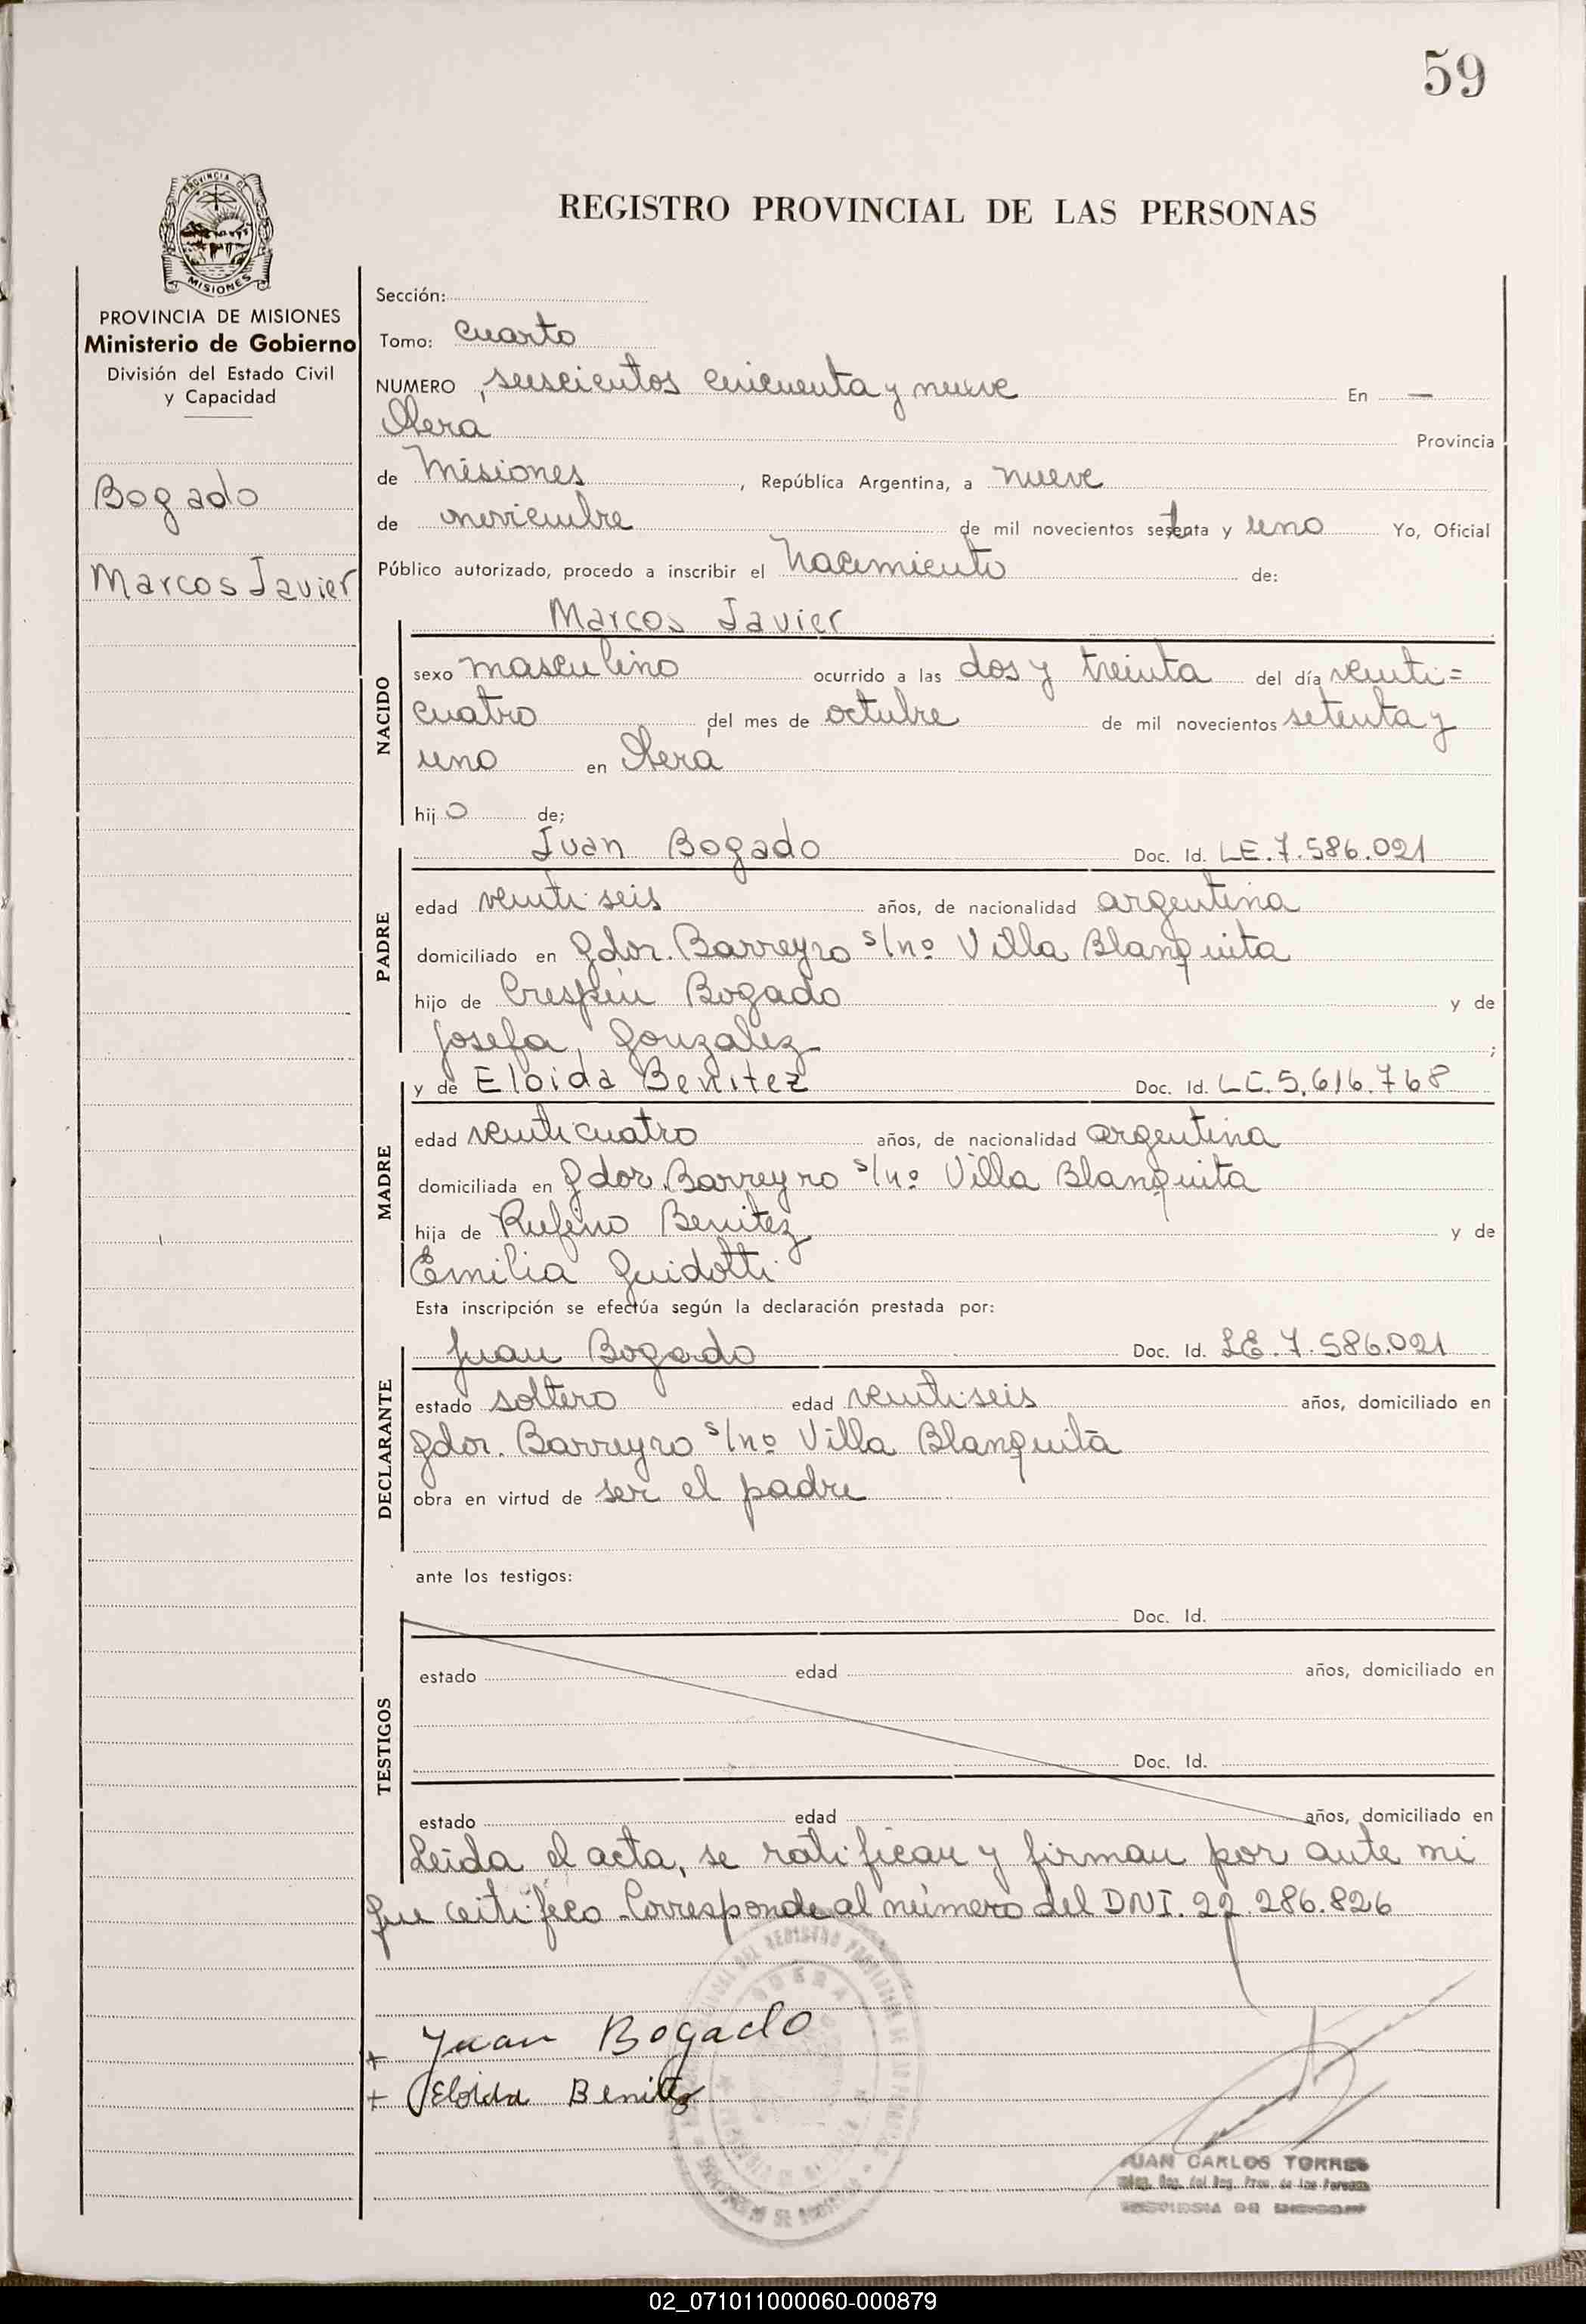 59
PROVINCIA DE
MISIONES
REGISTRO PROVINCIAL DE LAS PERSONAS
PROVINCIA DE MISIONES
Ministerio de Gobierno
División del Estado Civil
y Capacidad
Bogado
Marcos Javier
Sección:
Tomo: cuarto
NUMERO seiscientos cincuenta y nueve En —
Obera Provincia
de Misiones, República Argentina, a nueve
de noviembre de mil novecientos setenta y uno Yo, Oficial
Público autorizado, procedo a inscribir el nacimiento de:
NACIDO
Marcos Javier
sexo masculino ocurrido a las dos y treinta del día veinti=
cuatro del mes de octubre de mil novecientos setenta y
uno en Obera
hijo de;
PADRE
Juan Bogado Doc. Id. LE.7.586.021
edad veintiseis años, de nacionalidad argentina
domiciliado en Gdor. Barreyro s/nº Villa Blanquita
hijo de Crespin Bogado y de
Josefa Gonzalez ;
MADRE
y de Eloida Benitez Doc. Id. LC.5.616.768
edad veinticuatro años, de nacionalidad argentina
domiciliada en Gdor. Barreyro s/nº Villa Blanquita
hija de Rufino Benitez y de
Emilia Guidotti
Esta inscripción se efectúa según la declaración prestada por:
DECLARANTE
Juan Bogado Doc. Id. LE.7.586.021
estado soltero edad veintiseis años, domiciliado en
Gdor. Barreyro s/nº Villa Blanquita
obra en virtud de ser el padre
ante los testigos:
TESTIGOS
Doc. Id.
estado edad años, domiciliado en
Doc. Id.
estado edad años, domiciliado en
Leida el acta, se ratifican y firman por ante mi
que certifico. Corresponde al número del DNI. 22.286.826
+ Juan Bogado
+ Eloida Benitez
JUAN CARLOS TORRES
02_071011000060-000879